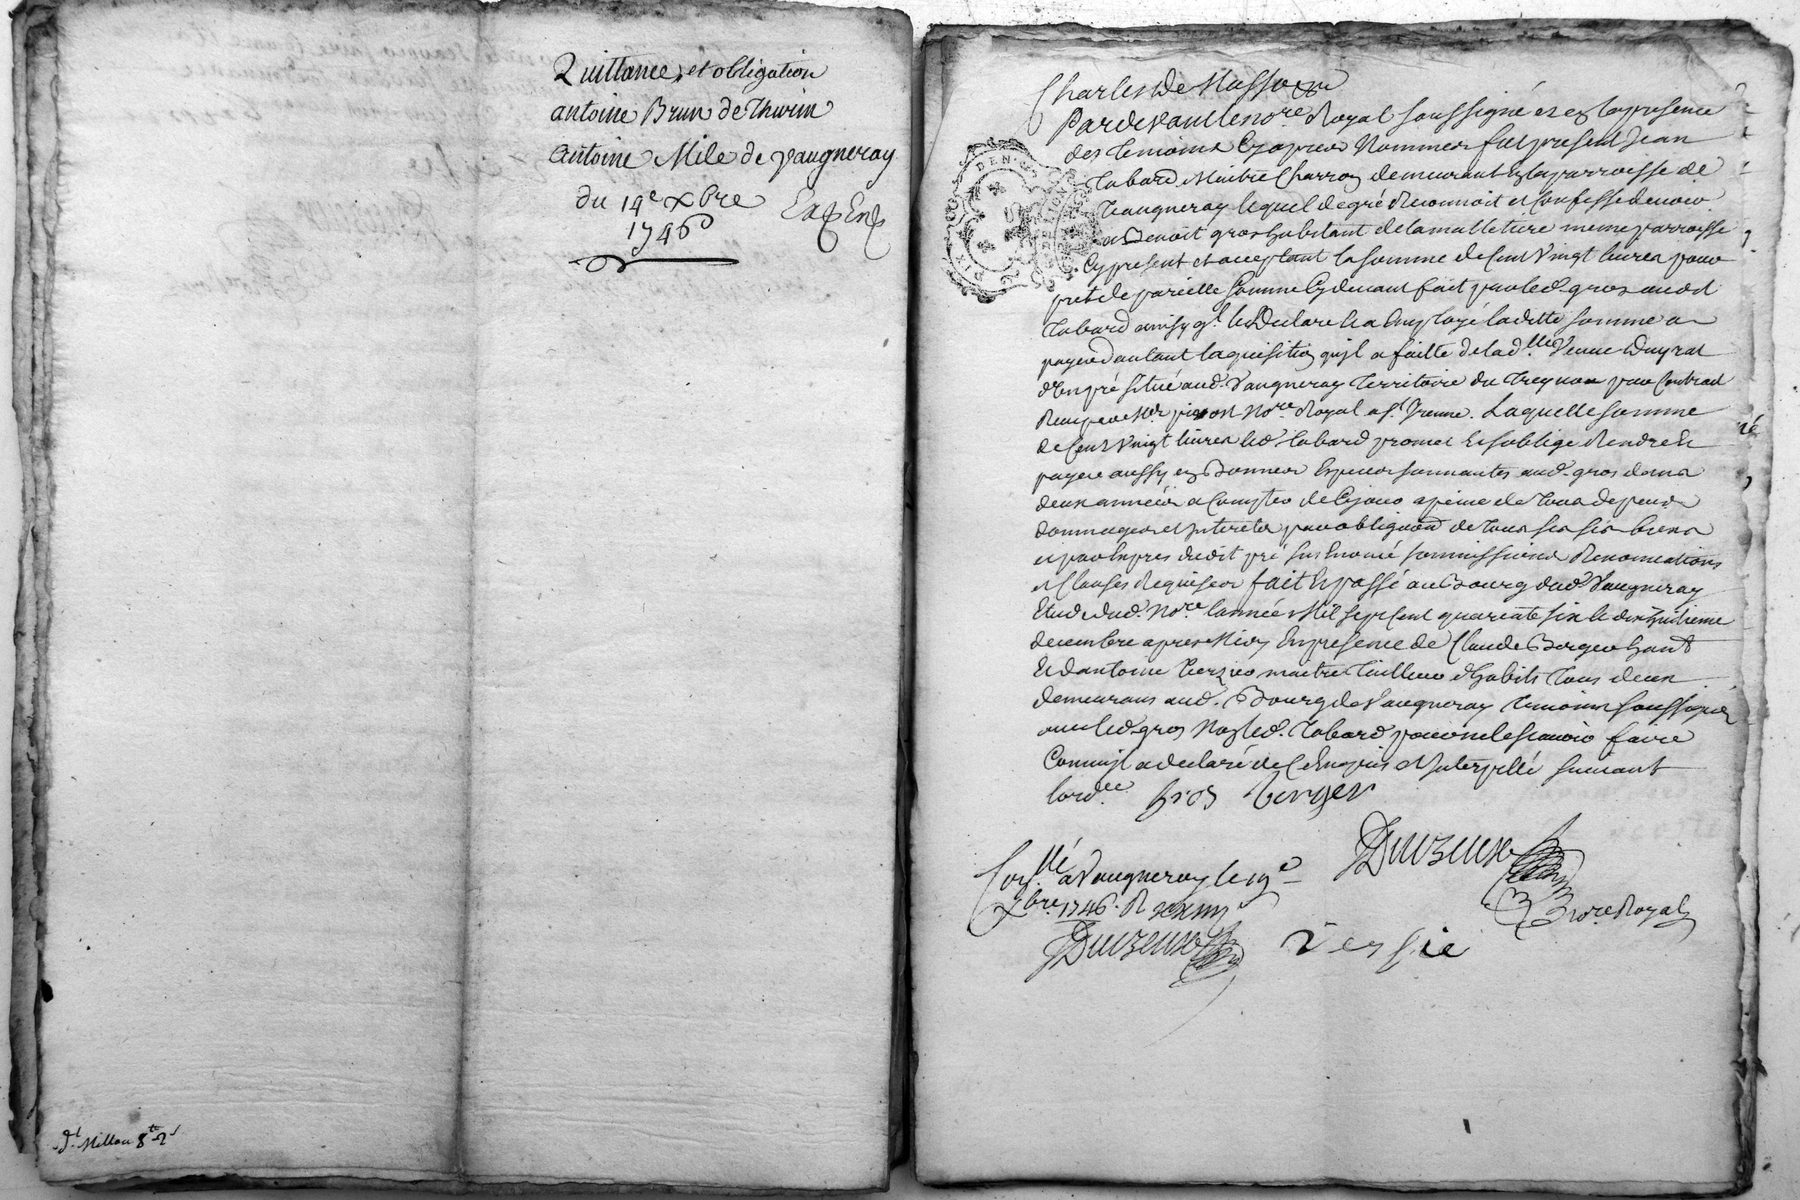 Quittance, et obligation
antoine Brun de Thurin
antoine Mile de vaugneray
du 19e xbre
1746
Exp Enr
Charles de Masso
Pardevant le nore Royal soussigné et en la presence
des Temoins Cy apres Nommes fut present Jean
Tabard Maitre Charron demeurant En la parroisse de
Vaugneray lequel de gré Reconnoit et Confesse devoir
a Benoit gros habitant de la malletiere meme parroisse
Cy present et acceptant la somme de Cent Vingt livres pour
pret de pareille somme Cy devant fait par led. gros aud.
Tabard ainsy ql. le Declare Et a Employé laditte somme a
payer dautant laquisition quil a faitte de lad.lle Veuve
dEun pré situé aud. Vaugneray Territoire du par Contract
Receu par Mer Nore Royal a St. Irenne. Laquelle somme
de Cent Vingt livres led. Tabard promet Et soblige Rendre Et
payer aussy en Bonnes Especes sonnantes aud. gros dans
deux années a Compter de Ce jour a peine de Tous depens
dommages et Interets par obligaon de Tous ses biens
et par Expres dudit pré sus Enoncé soumissions Renonciations
et Clauses Requises fait Et passé au Bourg dud. Vaugneray
Etude dud. Nore lannée Mil sept Cent quarente six le dix huitieme
decembre apres Midy En presence de Claude Berger
Et dantoine maitre Tailleur dhabits Tous deux
demeurans aud. Bourg de Vaugneray Temoins soussignés
avec led. gros Non led. Tabard pour ne le scavoir faire
Comme il a declaré de Ce Enquis et Interpellé suivant
lord.ce gros berger
Conllé a Vaugneray le 19e
xbre 1746. R
nore Royal